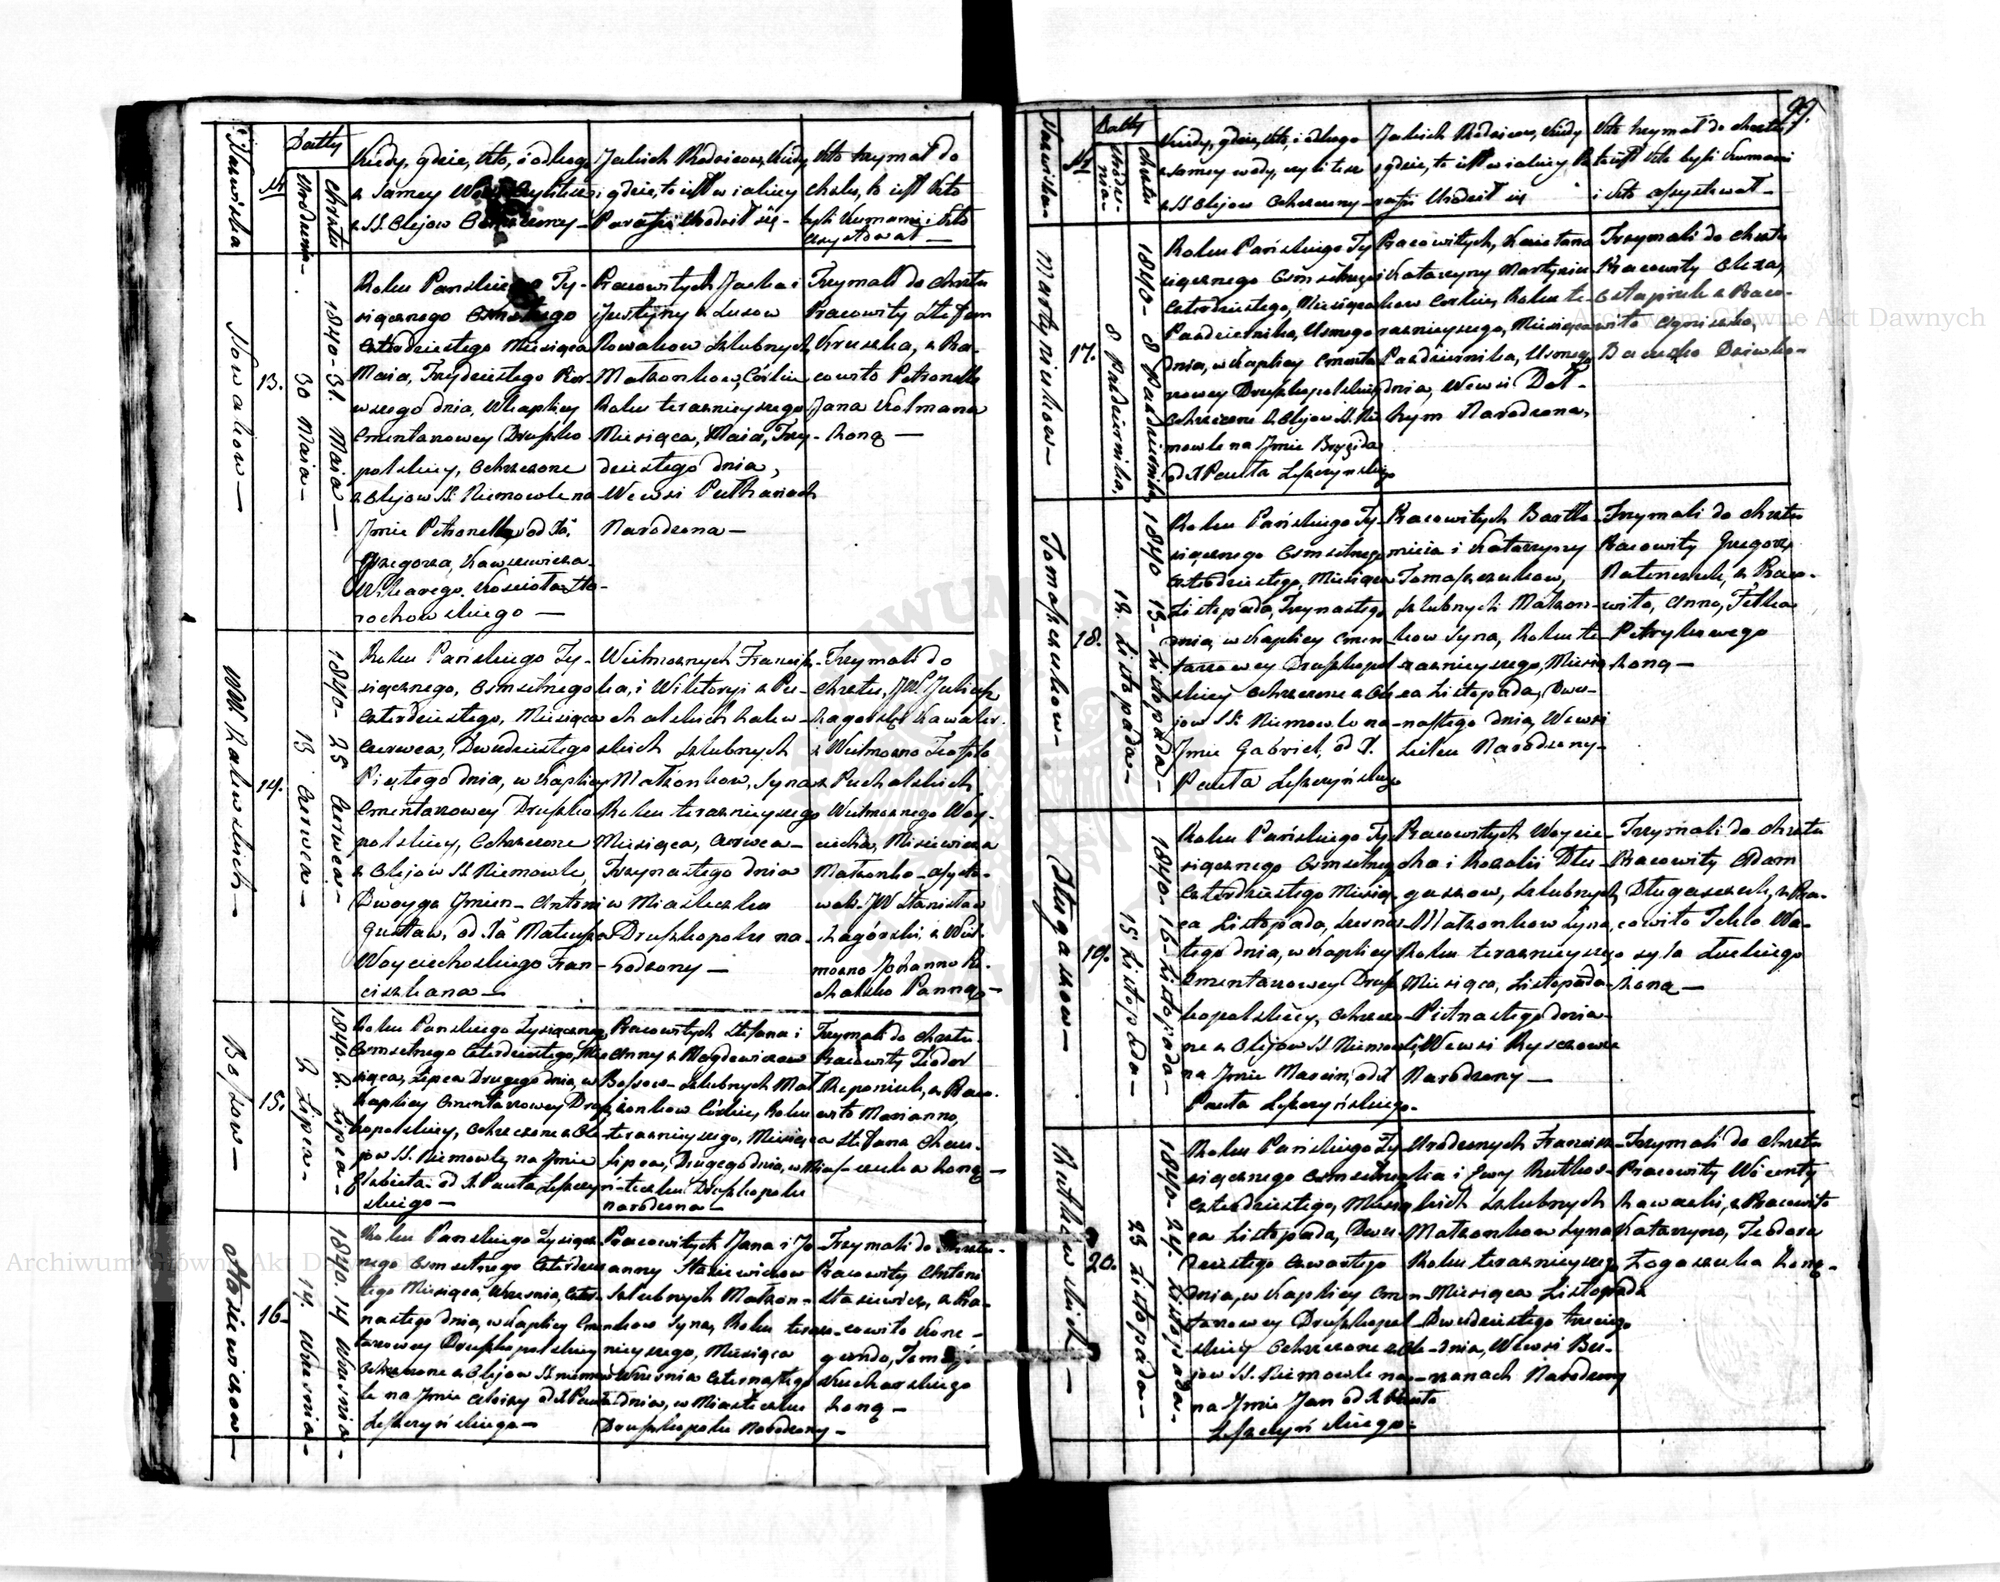 Nazwiska
№
Datty
Urodzenia
Chrztu
Kiedy, gdzie, Kto, i od kogo
z Samey Wody
z SS. Olejow Ochrzczony
Jakich Rodzicow, Kiedy
i gdzie, to iest w iakiey
Parafii Urodził się
Kto trzymał do
chrztu, to iest Kto
byli Kumami i Kto
Assystował
Nowakow
13.
30 Maia
1840 - 31. Maia
Roku Panskiego Ty-
siącznego Osmsetnego
Czterdziestego Miesiąca
Maia, Trzydziestego Pier-
wszego dnia, w Kaplicy
Cmentarzowey Druszko-
polskiey, Ochrzczone
z Olejow SS. Niemowle na
Jmie Petronella, od X.
Grzegorza,
Wikarego, Kościoła Ho-
rochowskiego
Pracowitych Jacka i
Justyny z Lusow
Nowakow Szlubnych
Matzonkow, Córka
Roku teraznieyszego
Miesiąca, Maia, Trzy-
dziestego dnia,
Wewsi Putkanach
Narodzona
Trzymali do Chrztu
Pracowity Stefan
Kruszka, z Pra-
cowito Petronello
Jana Kolmana
Zoną
WW Zalewskich
14.
13 Czerwca
1840 - 25 Czerwca
Roku Pańskiego Ty-
siącznego, Osmsetnego
Czterdziestego, Miesiąca
Czerwca, Dwudziestego
Piątego dnia, w Kaplicy
Cmentarzowey Druszko-
polskiey, Ochrzczone
z Olejow SS. Niemowle
Dwoyga Jmion - Antoni
Gustaw, od Xa Mateusza
Woyciechoskiego Fran-
ciszkana
Wielmoznych Francisz-
ka, i Wiktoryi z Pu-
chalskich Zalew-
skich Szlubnych
Matzonkow, Syna
Roku teraznieyszego
Miesiąca, Czerwca
Trzynastego dnia
w Miasteczku
Druszkopolu na-
rodzony
Trzymali do
Chrztu, JW. Juliusz
Zagorski Kawaler
z Wielmozno Teofilo
z Puchalskich
Wielmoznego Woy-
ciecha, Misiewicza
Matzonko - assysto-
wali JW Stanisław
Zagórski, z Wiel-
mozno Johanno Pu-
chalsko Panną
Bossow
15.
2 Lipca
1840. 2 Lipca
Roku Panskiego Tysiącznego
Osmsetnego Czterdziestego, Mie-
siąca, Lipca Drugiego dnia, w
Kaplicy Cmentarzowey Drusz-
kopolskiey, Ochrzczone z Ole-
jow SS. Niemowle, na Jmie
Elzbieta, od X Pawła Leszczyń-
skiego
Pracowitych Stefana i
Anny z Magdewiczow
Bossow Szlubnych Mat-
zonkow Córka, Roku
teraznieyszego, Miesiąca
Lipca, Drugiego dnia, w Mias-
teczku Druszkopolu
narodzona
Trzymali do Chrztu
Pracowity Teodor
Kreponiuk, z Praco-
wito Marianno,
Stefana
Zoną
Stasiewiczow
16
14. Wrzesnia
1840. 14 Wrzesnia
Roku Panskiego Tysiącz-
nego Osmsetnego Czterdzies-
tego Miesiąca, Wrzesnia, Czter-
nastego dnia, w Kaplicy Cmen-
tarzowey Druszkopolskiey
Ochrzczone z Olejow SS niemow-
le na Jmie Aloizy od X Pawła
Leszczyńskiego
Pracowitych Jana i Jo-
anny Stasiewiczow
Szlubnych Matzon-
kow Syna, Roku teraz-
nieyszego, Miesiąca
Wrzesnia Czternastego
dnia, w Miasteczku
Druszkopolu Narodzony
Trzymali do Chrztu
Pracowity Antoni
Stasiewicz, z Pra-
cowito Kune-
gundo, Tomasza
Kucharskiego
Zoną
99.
Nazwiska
№
Datty
Urodze-
nia
Chrztu
Kiedy, gdzie, Kto, i od kogo
z Samey wody, czyli tesz
z SS Olejow Ochrzczony
Jakich Rodzicow, Kiedy
i gdzie, to iest w iakiey Pa-
rafii Urodził się
Kto trzymał do Chrztu,
to iest Kto byli Kumami
i Kto assystował
Martyniukow
17.
8 Pazdziernika,
1840 - 8 Pazdziernika
Roku Pańskiego Ty-
siącznego Osmsetnego
Czterdziestego, Miesiąca
Pazdziernika, Osmego
dnia, w Kaplicy Cmenta-
rzowey Druszkopolskiey
Ochrzczone z Olejow SS. Nie-
mowle na Jmie Brygida
od X Pawła Leszczynskiego
Pracowitych, Kaietana
i Katarzyny Martyniu-
kow Corka, Roku te-
raznieyszego, Miesiąca
Pazdziernika, Osmego
dnia, Wewsi Doł-
hym Narodzona,
Trzymali do Chrztu
Pracowity Olexa,
Ostapiuk z Praco-
wito Agniszko,
Dziewko
Tomaszczukow
18.
12. Listopada
1840 13 - Listopada
Roku Pańskiego Ty-
siącznego Osmsetnego
Czterdziestego, Miesiąca
Listopada, Trzynastego
dnia, w Kaplicy Cmen-
tarzowey Druszkopol-
skiey Ochrzczone z Ole-
jow SS. Niemowle na
Jmie Gabriel, od X.
Pawła Leszczyńskiego
Pracowitych Bartło-
mieia i Katarzyny
Tomaszczukow,
Szlubnych Matzon-
kow Syna, Roku te-
raznieyszego, Miesią-
ca Listopada, Dwu-
nastego dnia, Wewsi
Narodzony
Trzymali do Chrztu
Pracowity Grzegorz
z Praco-
wito, Anno, Fedka
Petrykowego
Zoną
Długaszow
19.
15 Listopada
1840 - 16 - Listopada
Roku Pańskiego Ty-
siącznego Osmsetnego
Czterdziestego Miesią-
ca Listopada, Szesnas-
tego dnia, w Kaplicy
Cmentarzowey Drusz-
kopolskiey, Ochrzczo-
ne z Olejow SS Niemowle,
na Jmie Marcin, od X
Pawła Leszczyńskiego
Pracowitych Woycie-
cha i Rozalii Dłu-
gaszow, Szlubnych
Matzonkow Syna,
Roku teraznieyszego
Miesiąca, Listopada
Pietnastego dnia
Wewsi
Narodzony
Trzymali do Chrztu
Pracowity Adam
Długaszczuk, z Pra-
cowito Teklo Wa-
syla
Zoną
Rutkowskich
20.
23 Listopada
1840 - 24. Listopada
Roku Pańskiego Ty-
siącznego Osmsetnego
Czterdziestego, Miesią-
ca Listopada, Dwu-
dziestego Czwartego
dnia, w Kaplicy Cmen-
tarzowey Druszkopol-
skiey Ochrzczone z Ole-
jow SS. Niemowle na
na Jmie Jan od X Pawła
Leszczyńskiego
Urodzonych Francisz-
ka i Ewy Rutkow-
skich Szlubnych
Matzonkow Syna
Roku teraznieyszego
Miesiąca Listopada
Dwudziestego trzeciego
dnia, Wewsi Bu-
rzanach Narodzony
Trzymali do Chrztu
Pracowity Wicenty
Zawadzki, z Pracowito
Katarzyno, Teodora
Zoną
Archiwum Główne Akt Dawnych
Archiwum Główne Akt Dawnych